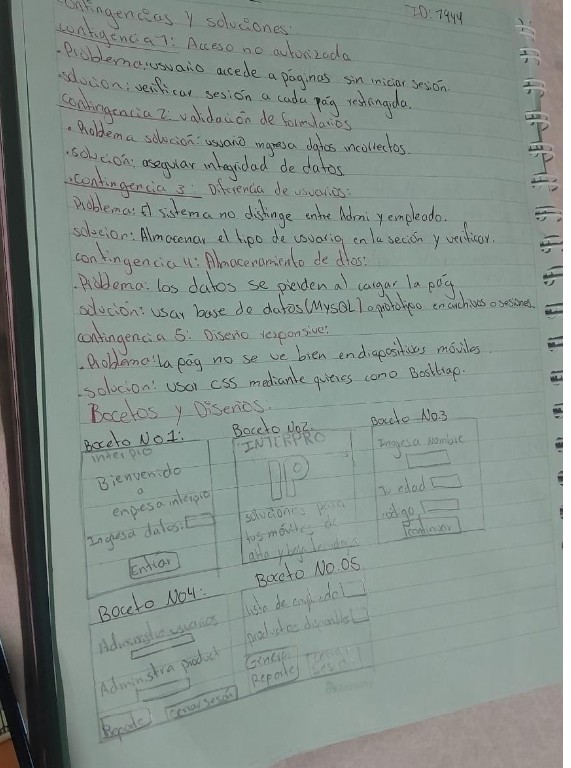 ID: 7444
Contingencias y soluciones:
Contigencia 1: Acceso no autorizado
• Problema: usuario accede a paginas sin iniciar sesión.
• solucion: verificar sesión a cada pág restringida.
contingencia 2: validación de formularios
• Problema solución: usuario ingresa datos incollectos.
• solución: asegurar integridad de datos
• contingencia 3: Diferencia de usuarios:
Problema: El sistema no distinge entre Admi y empleado.
solucion: Almacenar el tipo de usuario en la seción y verificar.
contingencia 4: Almacenamiento de dtos:
• Problema: los datos se pierden al cargar la pág
solución: usar base de datos (MysQL) o prototipo en archivos o sesiones.
contingencia 5: Diseño responsive:
• Problema: la pág no se ve bien en diapositivas móviles.
• solucion: usar css mediante quieres como Bosttrap.
Bocetos y Diseños.
Boceto No1:
interpro
Bienvenido
a
enpresa interpro
Ingresa datos:
Entrar
Boceto No2:
INTERPRO
IP
soluciones para
tus móviles de
alta y baja
Boceto No3
Ingresa nombre
Tu edad
codigo
Continuar
Boceto No4:
Administra usuarios
Administra product
Repote
cerrar sesión
Boceto No.05
lista de empleado
productos disponibles
Generar
Reporte